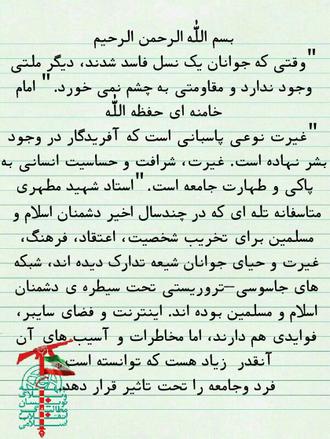 بسم الله الرحمن الرحیم
"وقتی که جوانان یک نسل فاسد شدند، دیگر ملتی
وجود ندارد و مقاومتی به چشم نمی خورد." امام
خامنه ای حفظه الله
"غیرت نوعی پاسبانی است که آفریدگار در وجود
بشر نهاده است. غیرت، شرافت و حساسیت انسانی به
پاکی و طهارت جامعه است."استاد شهید مطهری
متاسفانه تله ای که در چندسال اخیر دشمنان اسلام و
مسلمین برای تخریب شخصیت، اعتقاد، فرهنگ،
غیرت و حیای جوانان شیعه تدارک دیده اند، شبکه
های جاسوسی-تروریستی تحت سیطره ی دشمنان
اسلام و مسلمین بوده اند. اینترنت و فضای سایبر،
فوایدی هم دارند، اما مخاطرات و آسیب های آن
آنقدر زیاد هست که توانسته است
فرد وجامعه را تحت تاثیر قرار دهد.